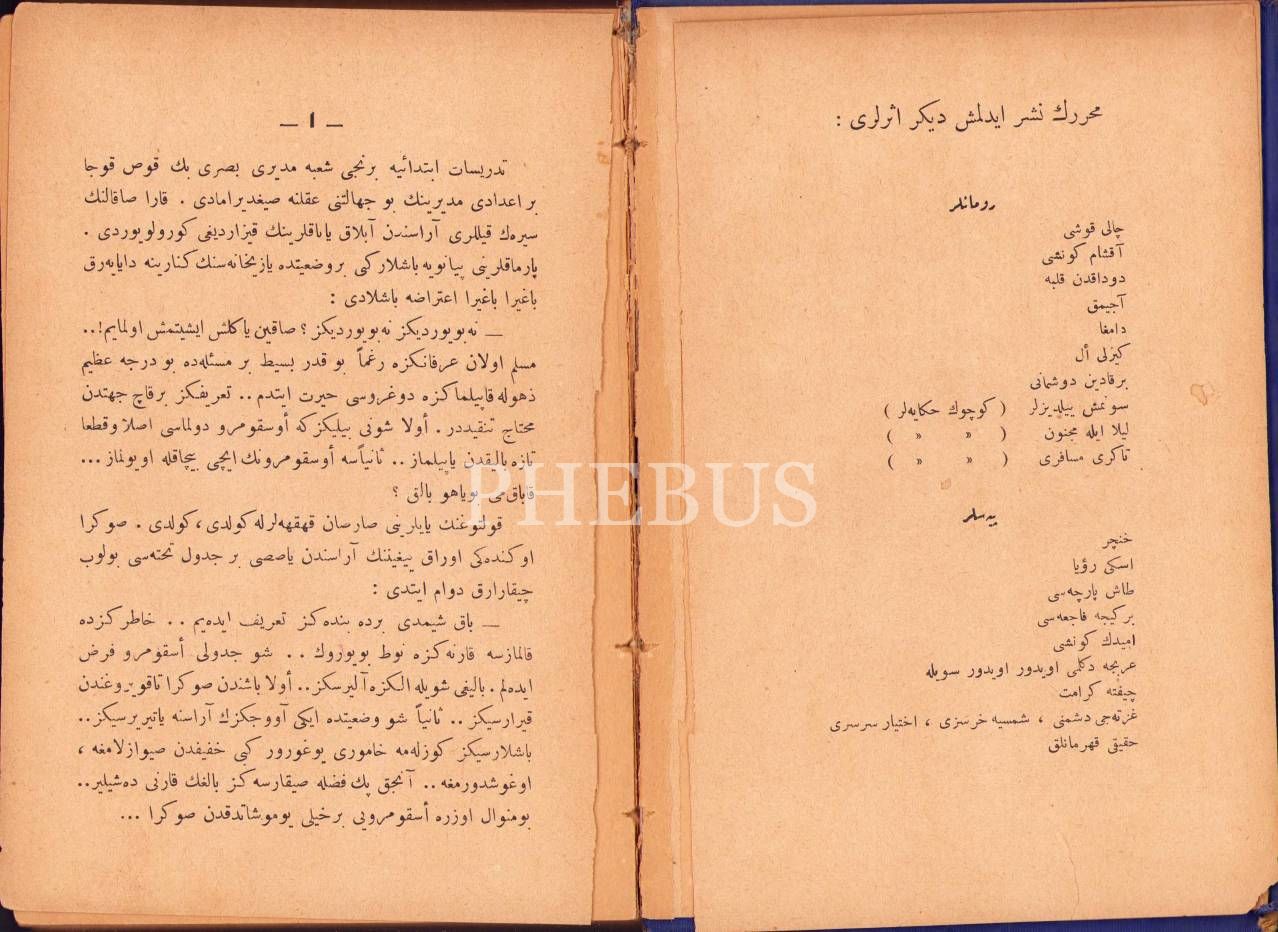 محررك نشر ايدلمش ديكر اثرلرى :
رومانلر
چالى قوشى
آقشام كونشى
دوداقدن قلبه
آجيمق
دامغا
كيزلى أل
بر قادين دوشمانى
سونمش ييلديزلر ( كوچوك حكايه‌لر )
ليلا ايله مجنون ( » » )
تاكرى مسافرى ( » » )
پيه‌سلر
خنچر
اسكى رؤيا
طاش پارچه‌سى
بر كيجه فاجعه‌سى
اميدك كونشى
عربجه دكلمى اويدور اويدور سويله
چيفته كرامت
غزته‌جى دشمنى ، شمسيه خرسزى ، اختيار سرسرى
حقيقى قهرمانلق
— ١ —
تدريسات ابتدائيه برنجى شعبه مديرى بصرى بك قوص قوجا
بر اعدادى مديرينك بو جهالتنى عقلنه صيغديرامادى . قارا صاقالنك
سيرەك قيللرى آراسندن آبلاق ياناقلرينك قيزارديغى كورولويوردى .
پارماقلرينى پيانويه باشلاركى بر وضعيتده يازيخانه‌سنك كنارينه دايايه‌رق
باغيرا باغيرا اعتراضه باشلادى :
— نه‌بويورديكز نه‌بويورديكز ؟ صاقين ياكلش ايشيتمش اولمايم !..
مسلم اولان عرفانكزه رغماً بو قدر بسيط بر مسئله‌ده بو درجه عظيم
ذهوله قاپيلماكزه دوغروسى حيرت ايتدم .. تعريفكز برقاچ جهتدن
محتاج تنقيددر . أولا شونى بيليكزكه أوسقومرو دولماسى اصلا وقطعا
تازه باليقدن ياپيلماز .. ثانياً‌سه أوسقومرونك ايچى بيچاقله اويولماز ...
قاباق‌مى بو ياهو بالق ؟
قولتوغنك يايلرينى صارصان قهقهه‌لرله كولدى ، كولدى . صوكرا
اوكنده‌كى اوراق ييغيننك آراسندن ياصصى بر جدول تخته‌سى بولوب
چيقارارق دوام ايتدى :
— باق شيمدى برده بنده‌كز تعريف ايده‌يم .. خاطركزده
قالمازسه قارنه‌كزه نوط بويوروك .. شو جدولى أسقومرو فرض
ايده‌لم . باليغى شويله الكزه آليرسكز .. أولا باشندن صوكرا تا قويروغندن
قيرارسيكز .. ثانياً شو وضعيتده ايكى آووجكزك آراسنه ياتيريرسيكز ..
باشلارسيكز كوزله‌مه خامورى يوغورور كبى خفيفدن صيوازلامغه ،
اوغوشدورمغه .. آنجق پك فضله صيقارسه‌كز بالغك قارنى ده‌شيلير ..
بومنوال اوزره أسقومرويى برخيلى يوموشاتدقدن صوكرا ...
PHEBUS